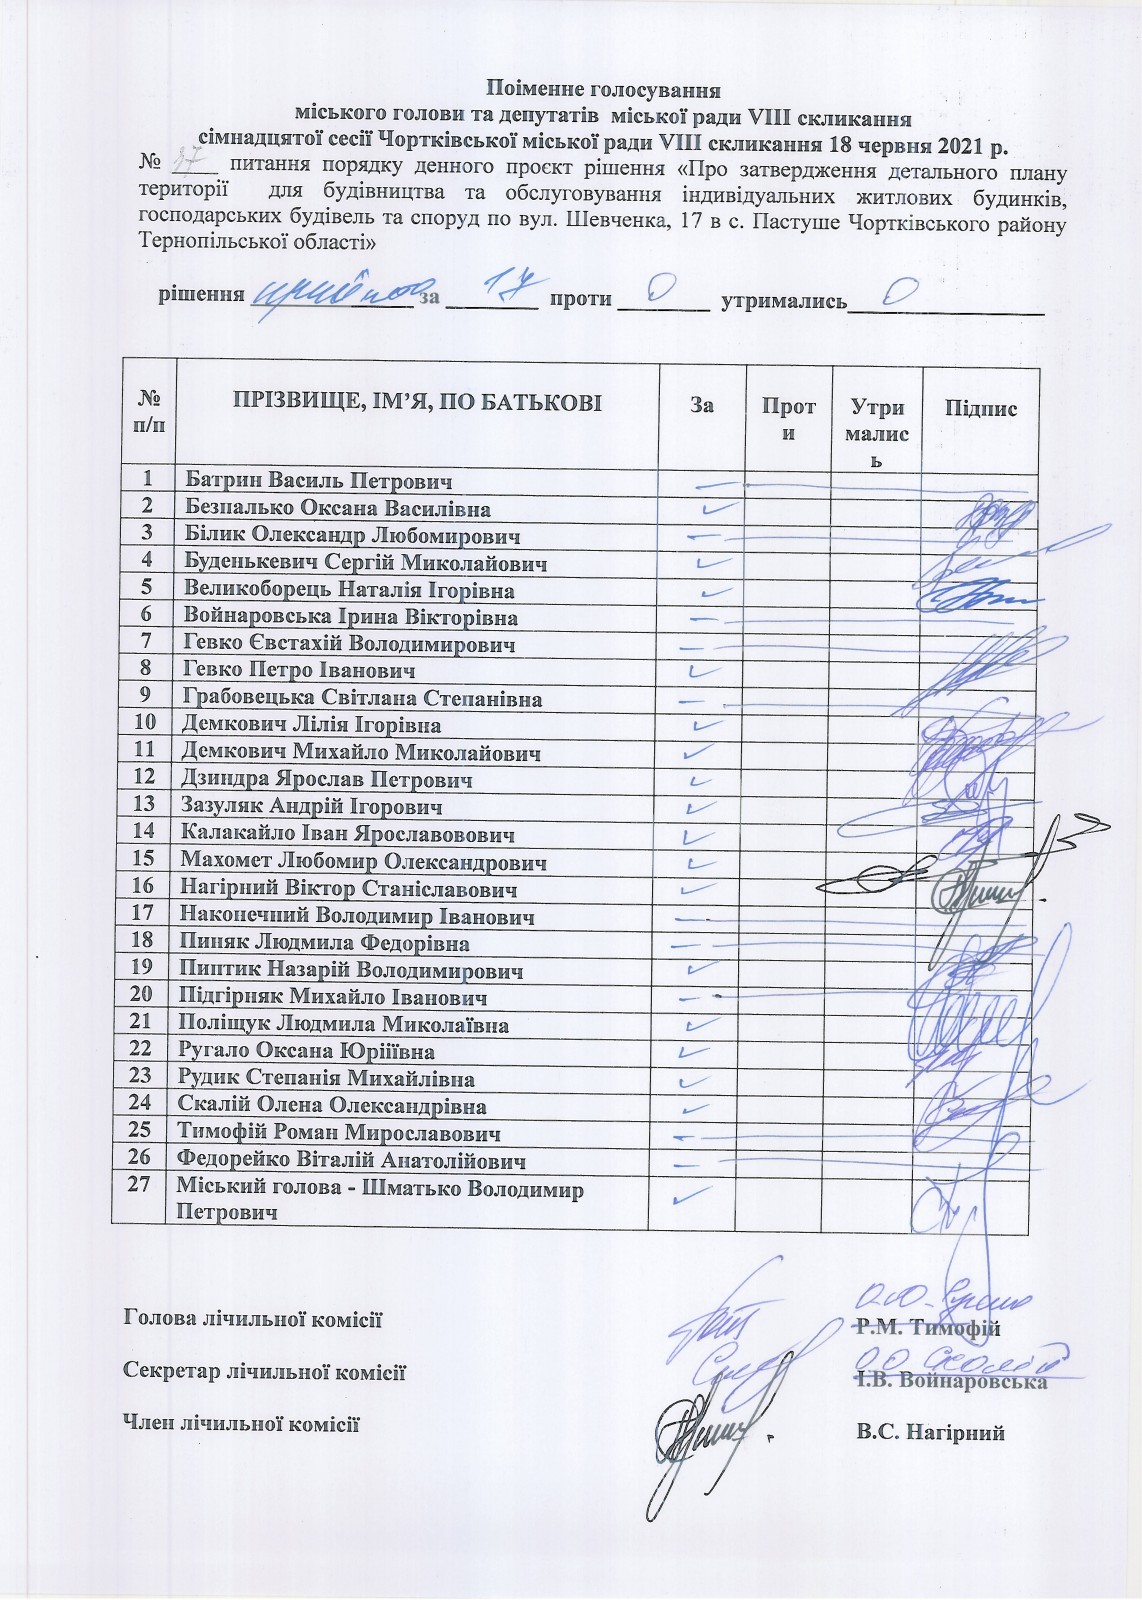 Поіменне голосування
міського голови та депутатів міської ради VIII скликання
сімнадцятої сесії Чортківської міської ради VIII скликання 18 червня 2021 р.
№ 37 питання порядку денного проєкт рішення «Про затвердження детального плану
території для будівництва та обслуговування індивідуальних житлових будинків,
господарських будівель та споруд по вул. Шевченка, 17 в с. Пастуше Чортківського району
Тернопільської області»
рішення прийнято за 17 проти 0 утримались 0
№ п/п ПРІЗВИЩЕ, ІМ’Я, ПО БАТЬКОВІ За Проти Утримались Підпис
1 Батрин Василь Петрович
2 Безпалько Оксана Василівна
3 Білик Олександр Любомирович
4 Буденькевич Сергій Миколайович
5 Великоборець Наталія Ігорівна
6 Войнаровська Ірина Вікторівна
7 Гевко Євстахій Володимирович
8 Гевко Петро Іванович
9 Грабовецька Світлана Степанівна
10 Демкович Лілія Ігорівна
11 Демкович Михайло Миколайович
12 Дзиндра Ярослав Петрович
13 Зазуляк Андрій Ігорович
14 Калакайло Іван Ярославовович
15 Махомет Любомир Олександрович
16 Нагірний Віктор Станіславович
17 Наконечний Володимир Іванович
18 Пиняк Людмила Федорівна
19 Пиптик Назарій Володимирович
20 Підгірняк Михайло Іванович
21 Поліщук Людмила Миколаївна
22 Ругало Оксана Юріїівна
23 Рудик Степанія Михайлівна
24 Скалій Олена Олександрівна
25 Тимофій Роман Мирославович
26 Федорейко Віталій Анатолійович
27 Міський голова - Шматько Володимир
Петрович
Голова лічильної комісії Р.М. Тимофій
Секретар лічильної комісії І.В. Войнаровська
Член лічильної комісії В.С. Нагірний